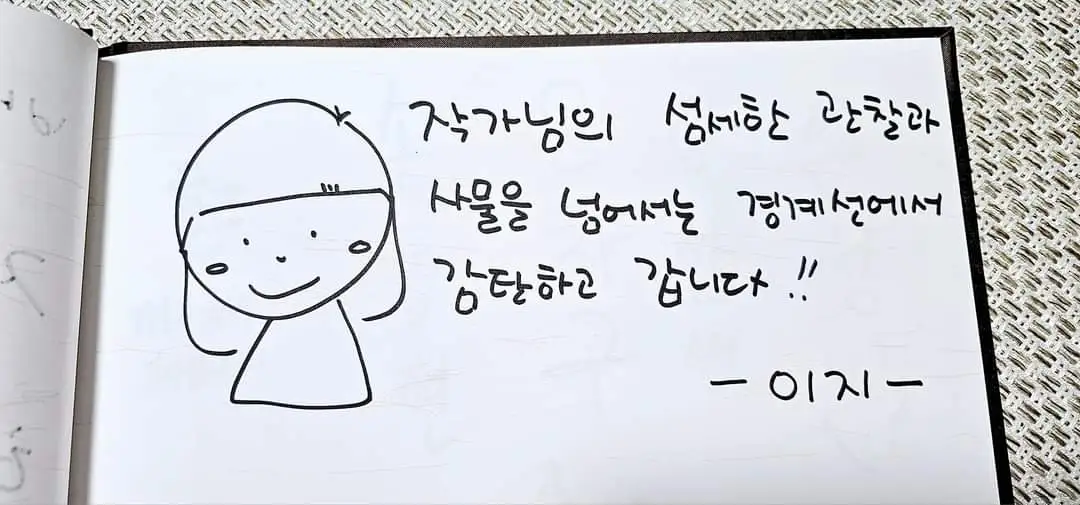 작가님의 섬세한 관찰과
사물을 넘어서는 경계선에서
감탄하고 갑니다!!
- 이지 -